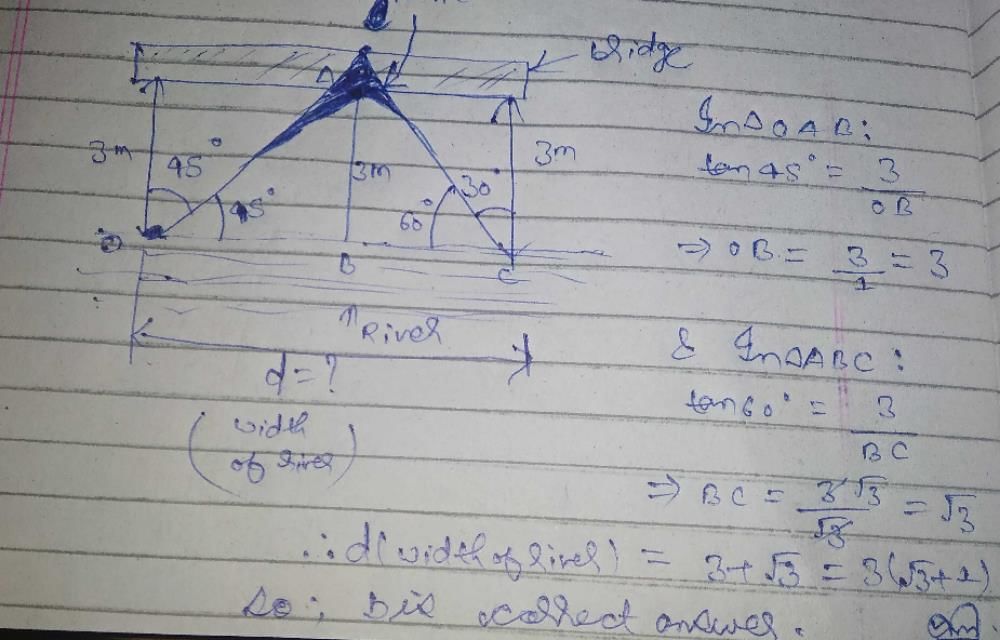 bridge
A
3m
45°
45°
3m
60°
30°
3m
O
B
C
River
d = ?
(width
of river)
In△OAB:
tan45° = 3/OB
⇒ OB = 3/1 = 3
& In△ABC:
tan60° = 3/BC
⇒ BC = 3√3/√3 = √3
∴ d(width of river) = 3+√3 = 3(√3+1)
So; B is correct answer.